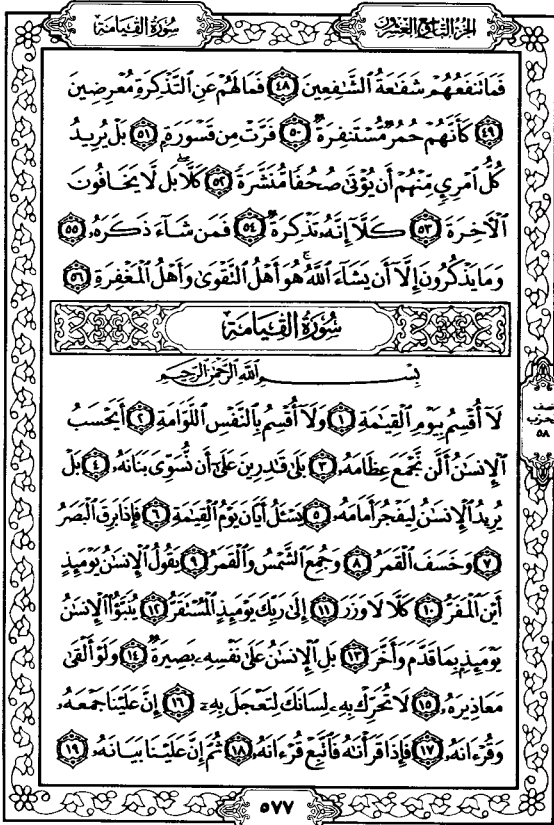 سُورَةُ القِيَامَةِ
الجُزْءُ التَّاسِعُ وَالعِشْرُونَ
فَمَا تَنفَعُهُمْ شَفَاعَةُ الشَّافِعِينَ ٤٨ فَمَا لَهُمْ عَنِ التَّذْكِرَةِ مُعْرِضِينَ
٤٩ كَأَنَّهُمْ حُمُرٌ مُّسْتَنفِرَةٌ ٥٠ فَرَّتْ مِن قَسْوَرَةٍ ٥١ بَلْ يُرِيدُ
كُلُّ امْرِئٍ مِّنْهُمْ أَن يُؤْتَىٰ صُحُفًا مُّنَشَّرَةً ٥٢ كَلَّا ۖ بَل لَّا يَخَافُونَ
الْآخِرَةَ ٥٣ كَلَّا إِنَّهُ تَذْكِرَةٌ ٥٤ فَمَن شَاءَ ذَكَرَهُ ٥٥
وَمَا يَذْكُرُونَ إِلَّا أَن يَشَاءَ اللَّهُ ۚ هُوَ أَهْلُ التَّقْوَىٰ وَأَهْلُ الْمَغْفِرَةِ ٥٦
سُورَةُ القِيَامَةِ
بِسْمِ اللَّهِ الرَّحْمَٰنِ الرَّحِيمِ
لَا أُقْسِمُ بِيَوْمِ الْقِيَٰمَةِ ١ وَلَا أُقْسِمُ بِالنَّفْسِ اللَّوَّامَةِ ٢ أَيَحْسَبُ
الْإِنسَٰنُ أَلَّن نَّجْمَعَ عِظَامَهُ ٣ بَلَىٰ قَٰدِرِينَ عَلَىٰ أَن نُّسَوِّيَ بَنَانَهُ ٤ بَلْ
يُرِيدُ الْإِنسَٰنُ لِيَفْجُرَ أَمَامَهُ ٥ يَسْـَٔلُ أَيَّانَ يَوْمُ الْقِيَٰمَةِ ٦ فَإِذَا بَرِقَ الْبَصَرُ
٧ وَخَسَفَ الْقَمَرُ ٨ وَجُمِعَ الشَّمْسُ وَالْقَمَرُ ٩ يَقُولُ الْإِنسَٰنُ يَوْمَئِذٍ
أَيْنَ الْمَفَرُّ ١٠ كَلَّا لَا وَزَرَ ١١ إِلَىٰ رَبِّكَ يَوْمَئِذٍ الْمُسْتَقَرُّ ١٢ يُنَبَّؤُا الْإِنسَٰنُ
يَوْمَئِذٍ بِمَا قَدَّمَ وَأَخَّرَ ١٣ بَلِ الْإِنسَٰنُ عَلَىٰ نَفْسِهِ بَصِيرَةٌ ١٤ وَلَوْ أَلْقَىٰ
مَعَاذِيرَهُ ١٥ لَا تُحَرِّكْ بِهِ لِسَانَكَ لِتَعْجَلَ بِهِ ١٦ إِنَّ عَلَيْنَا جَمْعَهُ
وَقُرْءَانَهُ ١٧ فَإِذَا قَرَأْنَٰهُ فَاتَّبِعْ قُرْءَانَهُ ١٨ ثُمَّ إِنَّ عَلَيْنَا بَيَانَهُ ١٩
نصف
الحزب
٥٨
٥٧٧